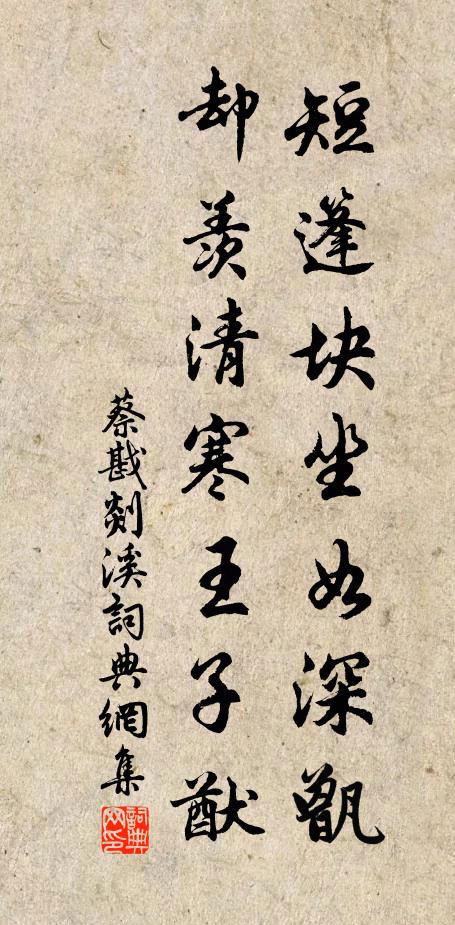 短蓬块坐如深甑
却羡清寒王子猷
蔡戡剡溪詞典網集
詞典網印